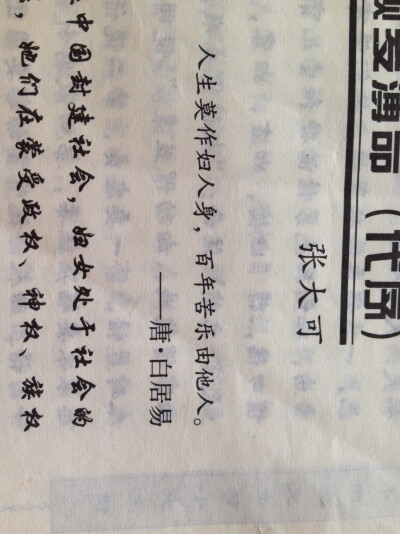 品（代序）
张大可
人生莫作妇人身，百年苦乐由他人。
——唐·白居易
中国封建社会，妇女处于社会的
，她们在蒙受政权、神权、族权